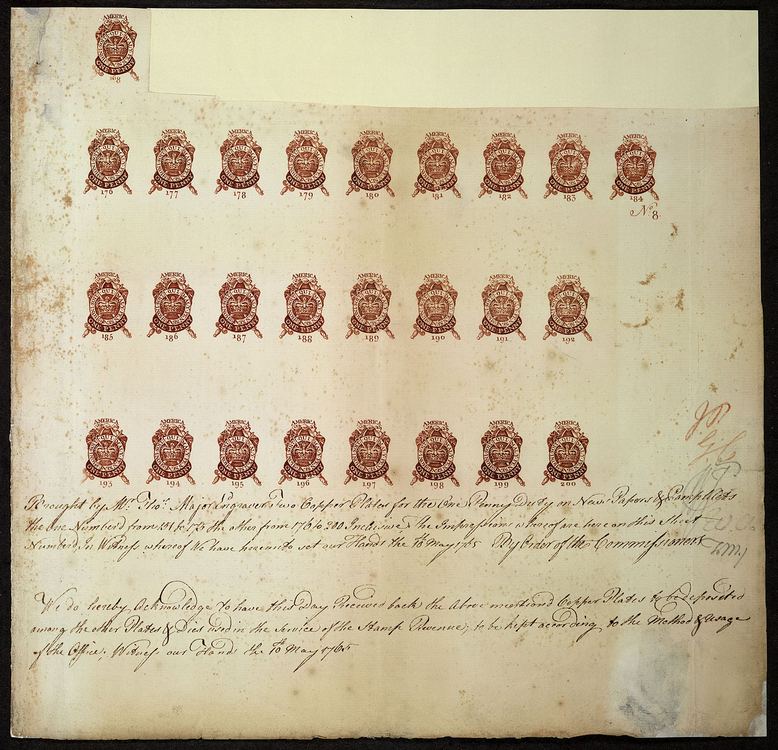 AMERICA
ONE PENNY
AMERICA AMERICA AMERICA AMERICA AMERICA AMERICA AMERICA AMERICA AMERICA
ONE PENNY ONE PENNY ONE PENNY ONE PENNY ONE PENNY ONE PENNY ONE PENNY ONE PENNY ONE PENNY
176 177 178 179 180 181 182 183 184
No 8
AMERICA AMERICA AMERICA AMERICA AMERICA AMERICA AMERICA AMERICA
ONE PENNY ONE PENNY ONE PENNY ONE PENNY ONE PENNY ONE PENNY ONE PENNY ONE PENNY
185 186 187 188 189 190 191 192
AMERICA AMERICA AMERICA AMERICA AMERICA AMERICA AMERICA AMERICA
ONE PENNY ONE PENNY ONE PENNY ONE PENNY ONE PENNY ONE PENNY ONE PENNY ONE PENNY
193 194 195 196 197 198 199 200
Brought by Mr. Thos. Major Engraver Two Copper Plates for the One Penny Duty on News Papers & Pamphlets
the one Numberd from 151 to 175 the other from 176 to 200 Inclusive The Impressions whereof are here on this Sheet
Numberd, In Witness whereof We have hereunto set our Hands the 10 May 1765 By Order of the Commissioners
We do hereby Acknowledge to have this Day Received back the above mentiond Copper Plates to be deposited
among the other Plates & Dies used in the Service of the Stamp Revenue, to be kept according to the Method & Usage
of the Office, Witness our Hands the 10 May 1765